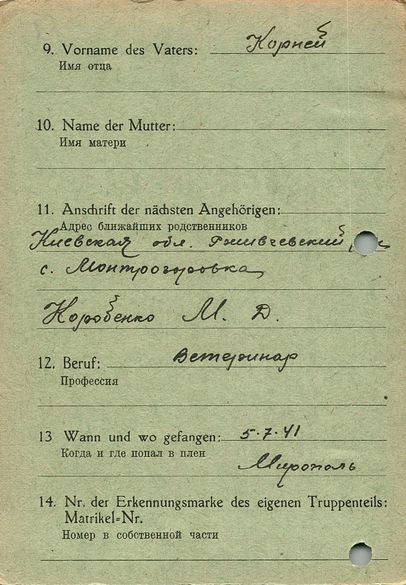 9. Vorname des Vaters: Корней
Имя отца
10. Name der Mutter:
Имя матери
11. Anschrift der nächsten Angehörigen:
Адрес ближайших родственников
Киевская обл. Ржищевский
с. Монтрогоровка
Коробенко М. Д.
12. Beruf: Ветеринар
Профессия
13 Wann und wo gefangen: 5.7.41
Когда и где попал в плен
Мирополь
14. Nr. der Erkennungsmarke des eigenen Truppenteils:
Matrikel-Nr.
Номер в собственной части